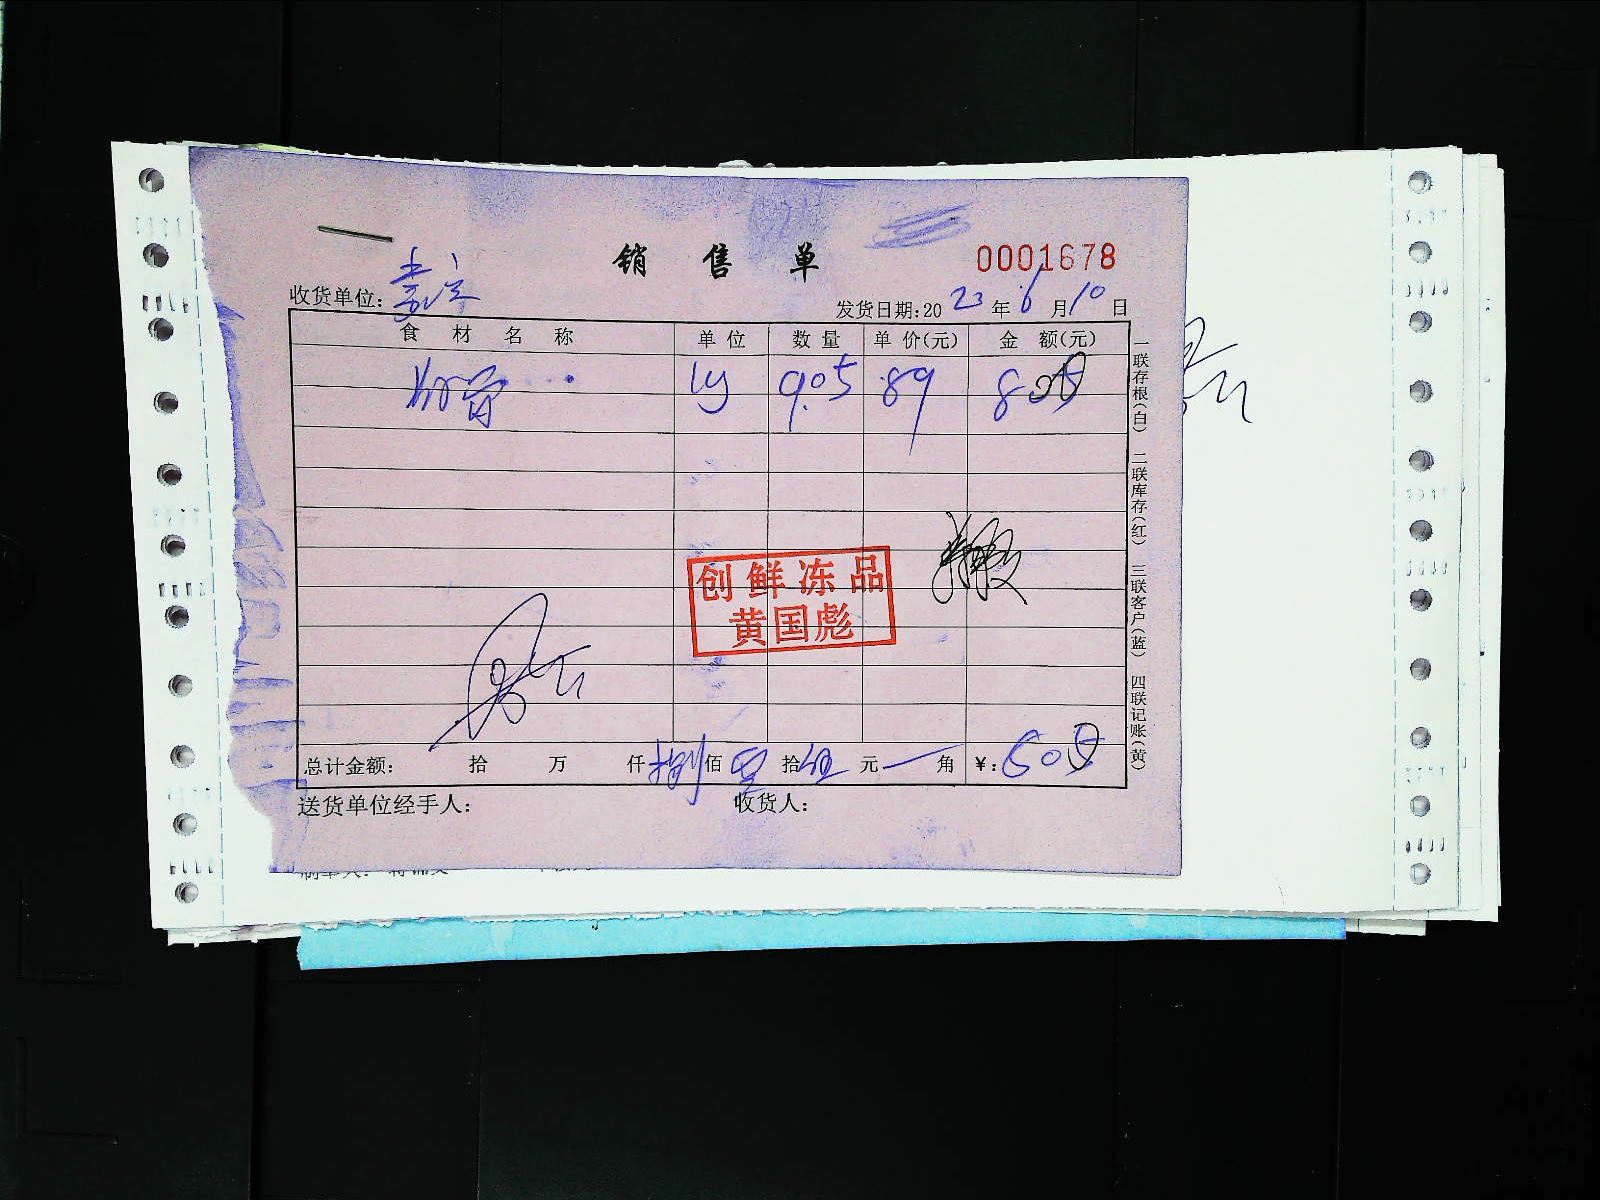 销售单
0001678
收货单位：
发货日期：2023年6月10日
食材名称 单位 数量 单价(元) 金额(元)
9.05 89 805
创鲜冻品
黄国彪
总计金额： 拾 万 仟捌佰零拾伍元一角 ¥：805
送货单位经手人： 收货人：
一联存根(白) 二联库存(红) 三联客户(蓝) 四联记账(黄)